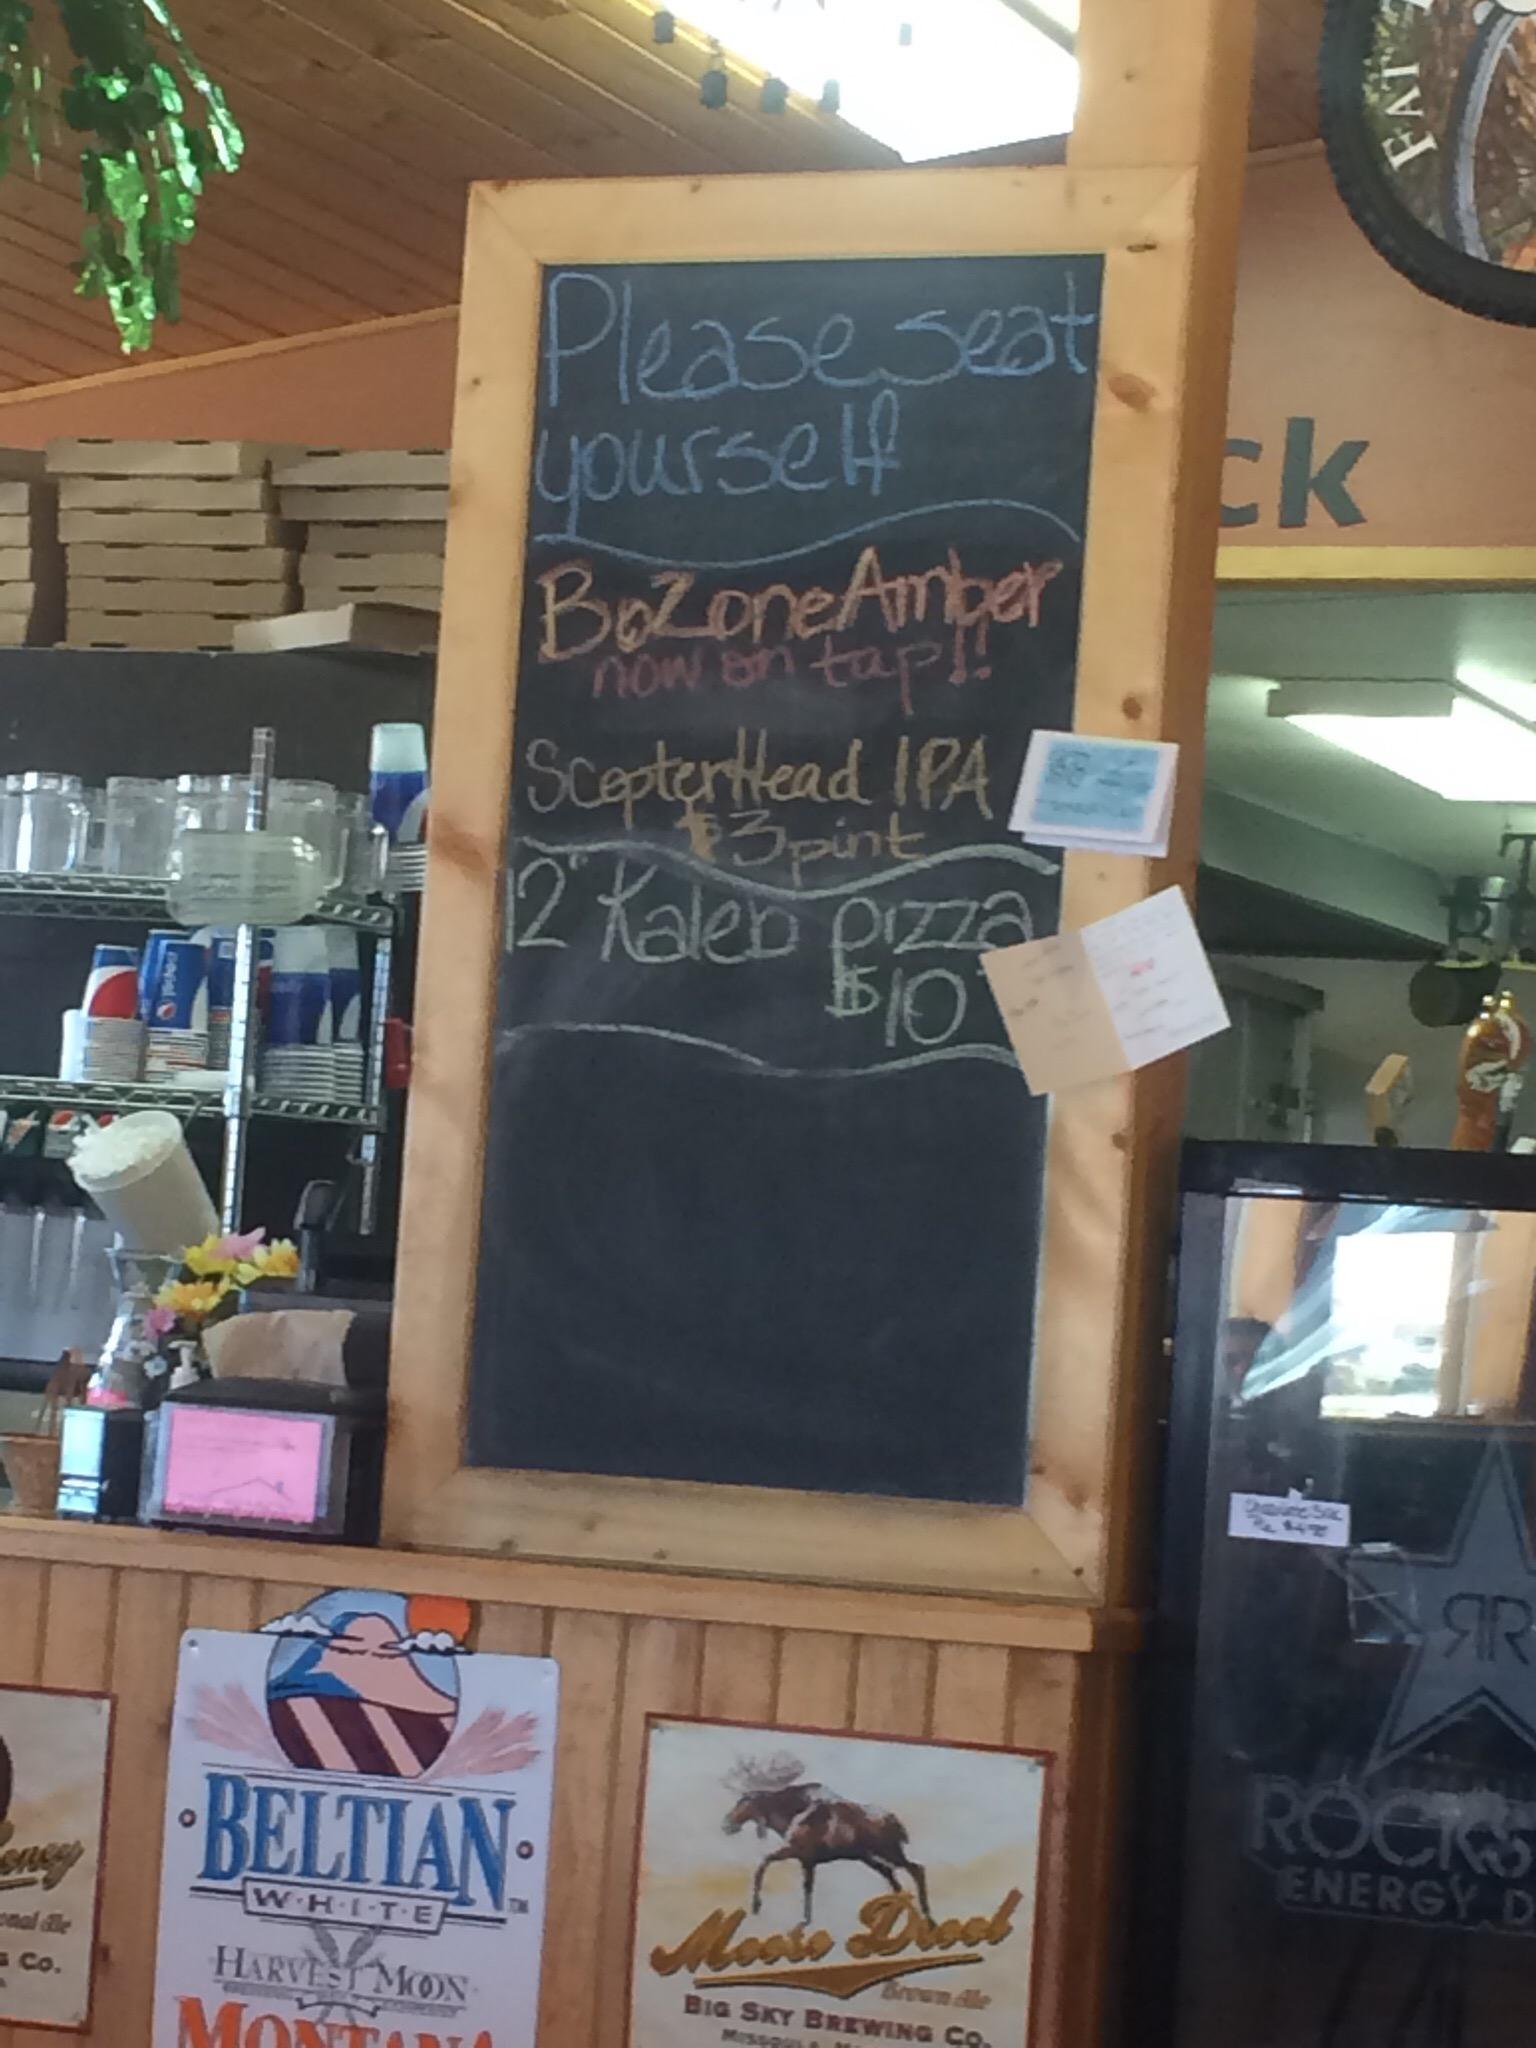 Please seat
yourself
BoZone Amber
now on tap!!
ScepterHead IPA
$3 pint
12" Kaleb pizza
$10
FAT
ck
pepsi
BELTIAN
W·H·I·T·E
HARVEST MOON
MONTANA
Moose Drool
Brown Ale
BIG SKY BREWING CO.
CO.
R R
ROCKS
ENERGY D